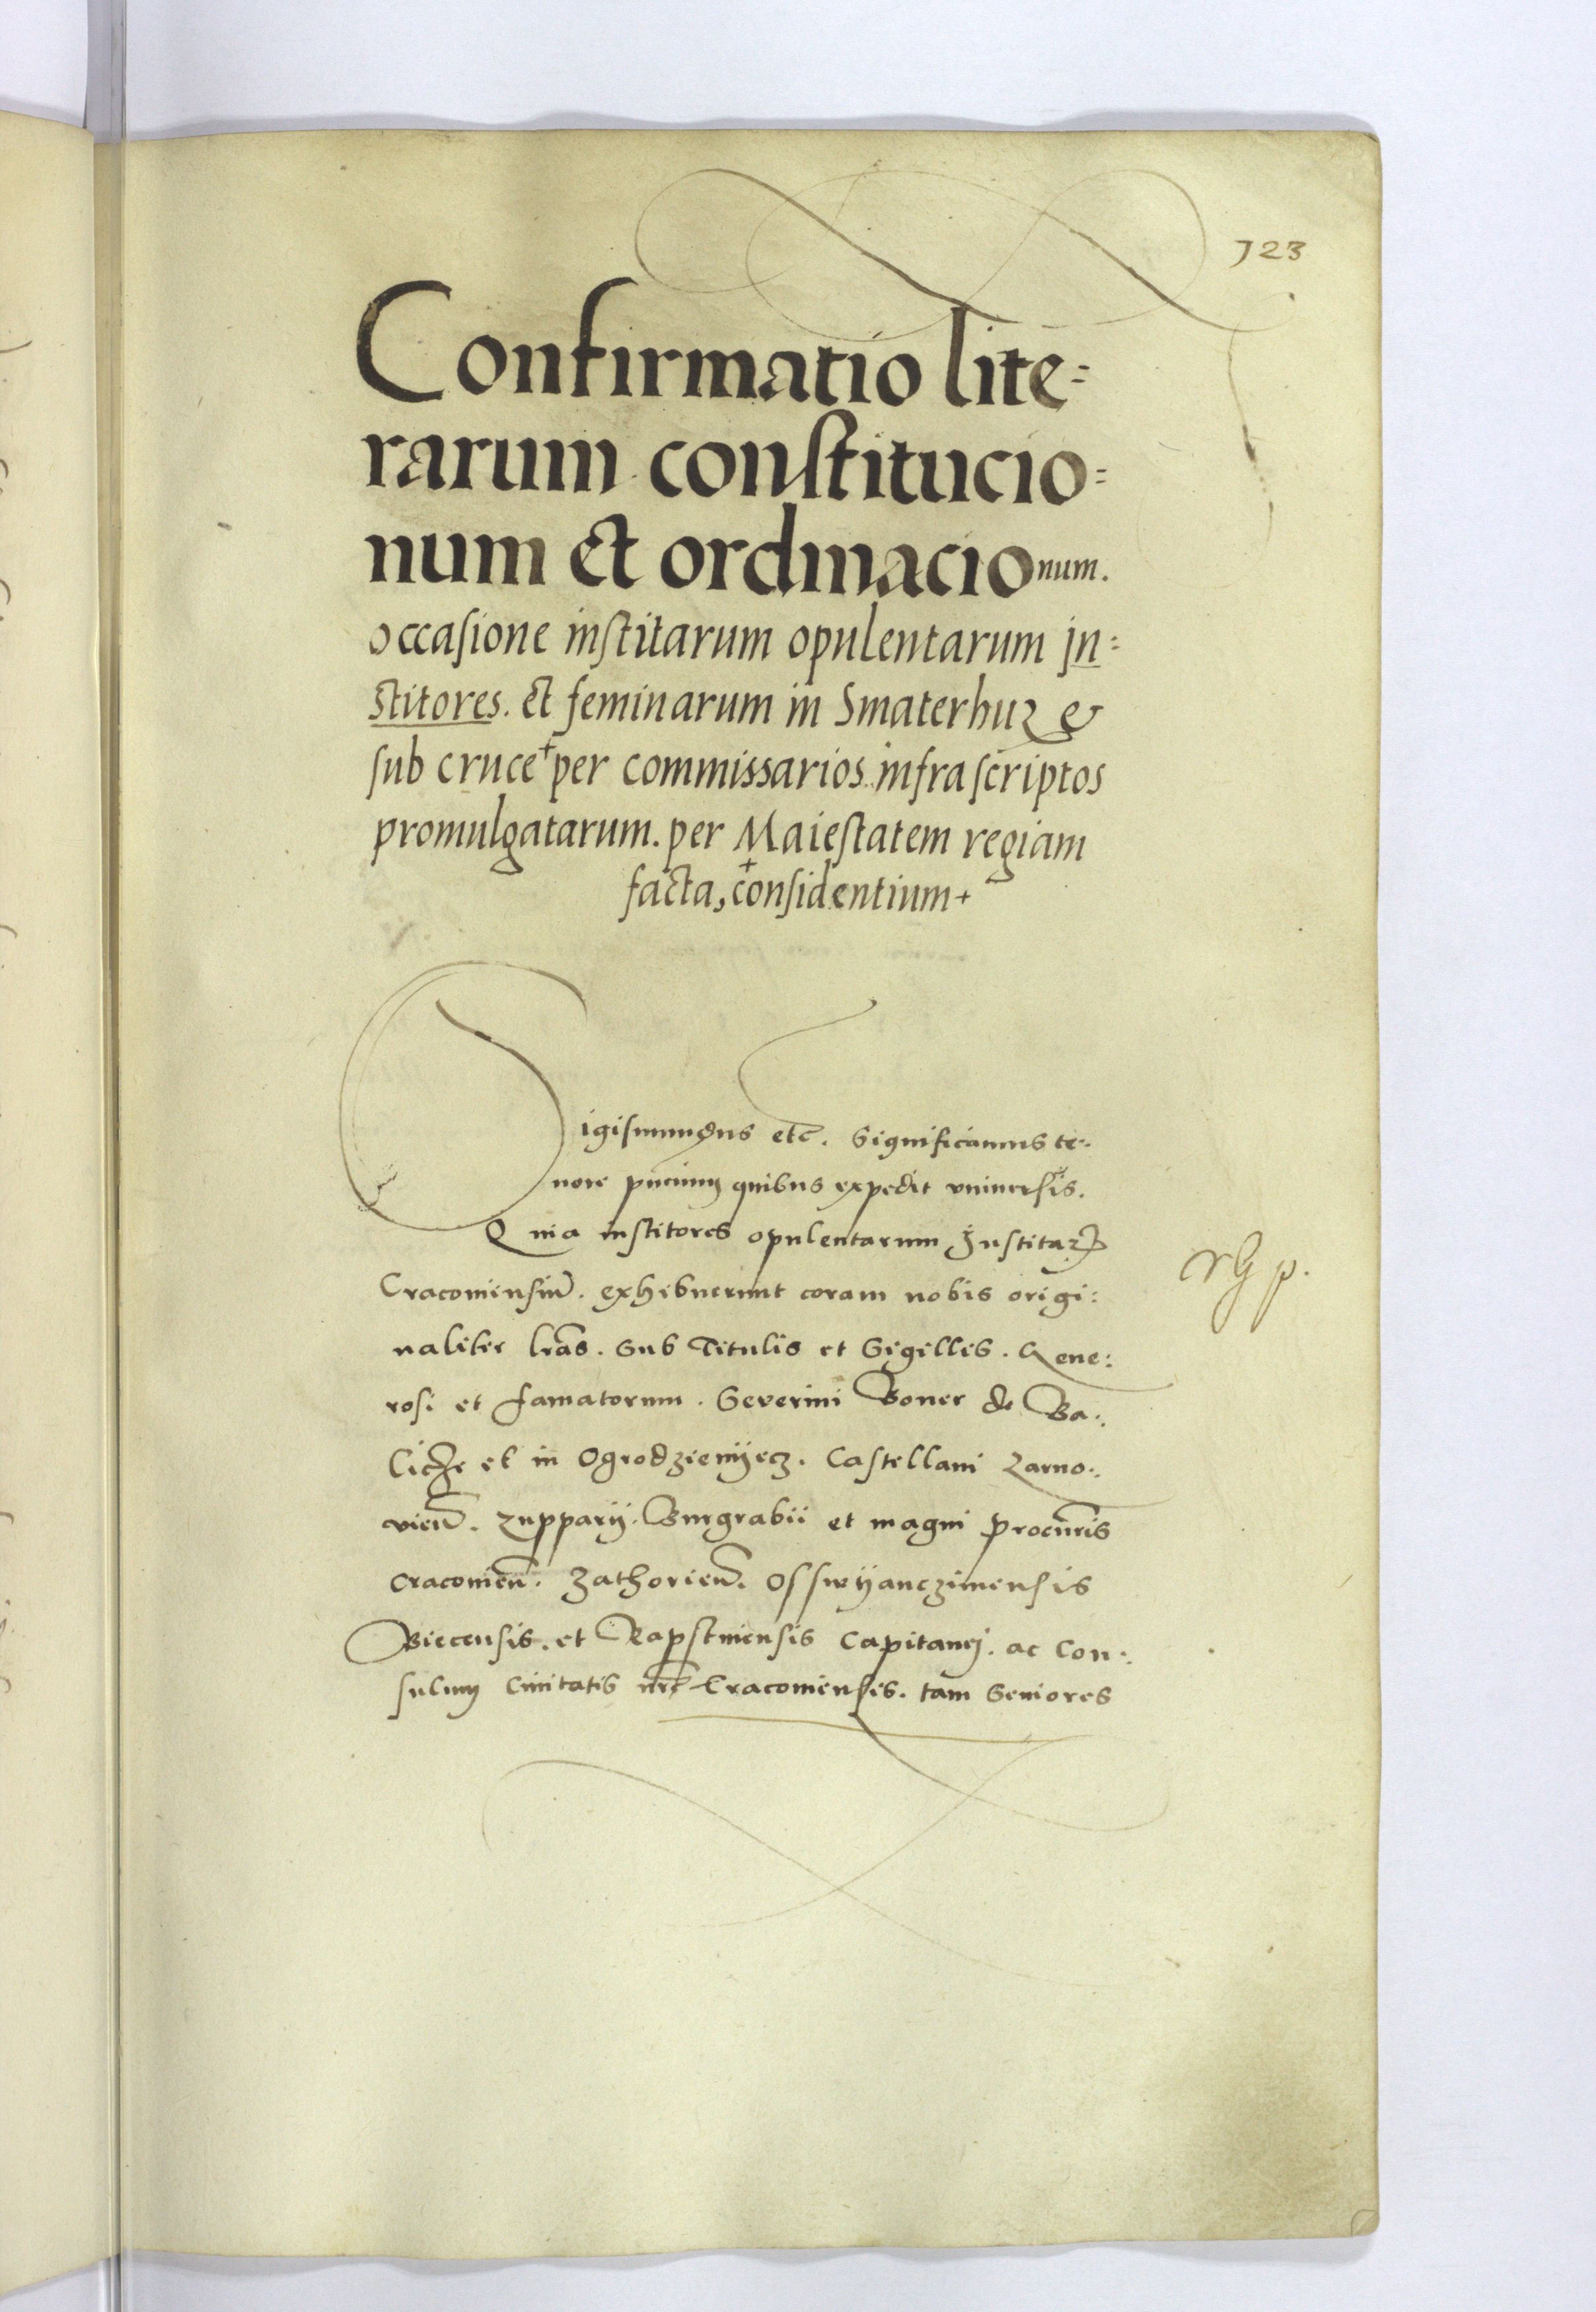 723
Confirmatio lite=
rarum constitucio=
num et ordinacionum.
occasione institarum opulentarum in=
stitores. et feminarum in Smaterhuz &
sub cruce + per commissarios infrascriptos
promulgatarum. per Maiestatem regiam
facta, + considentium +
Sigismundus etc. Significamus te=
nore pñcium quibus expedit vniuersis.
Quia institores opulentarum Institarꝝ
Cracouiensiũ. exhibuerunt coram nobis origi=
naliter lr̃as. Sub Titulis et Sigillis. Gene=
rosi et famatorum. Seuerini Boner de Ba=
licze et in Ogrodzienyecz. Castellani Zarno=
vieñ. Zupparij. Burgrabii et magni procur̃is
Cracouieñ. Zathorieñ. Osswyanczimensis
Biecensis. et Rapstinensis Capitanei. ac Con=
sulum Ciuitatis nr̃e Cracouiensis. tam Seniores